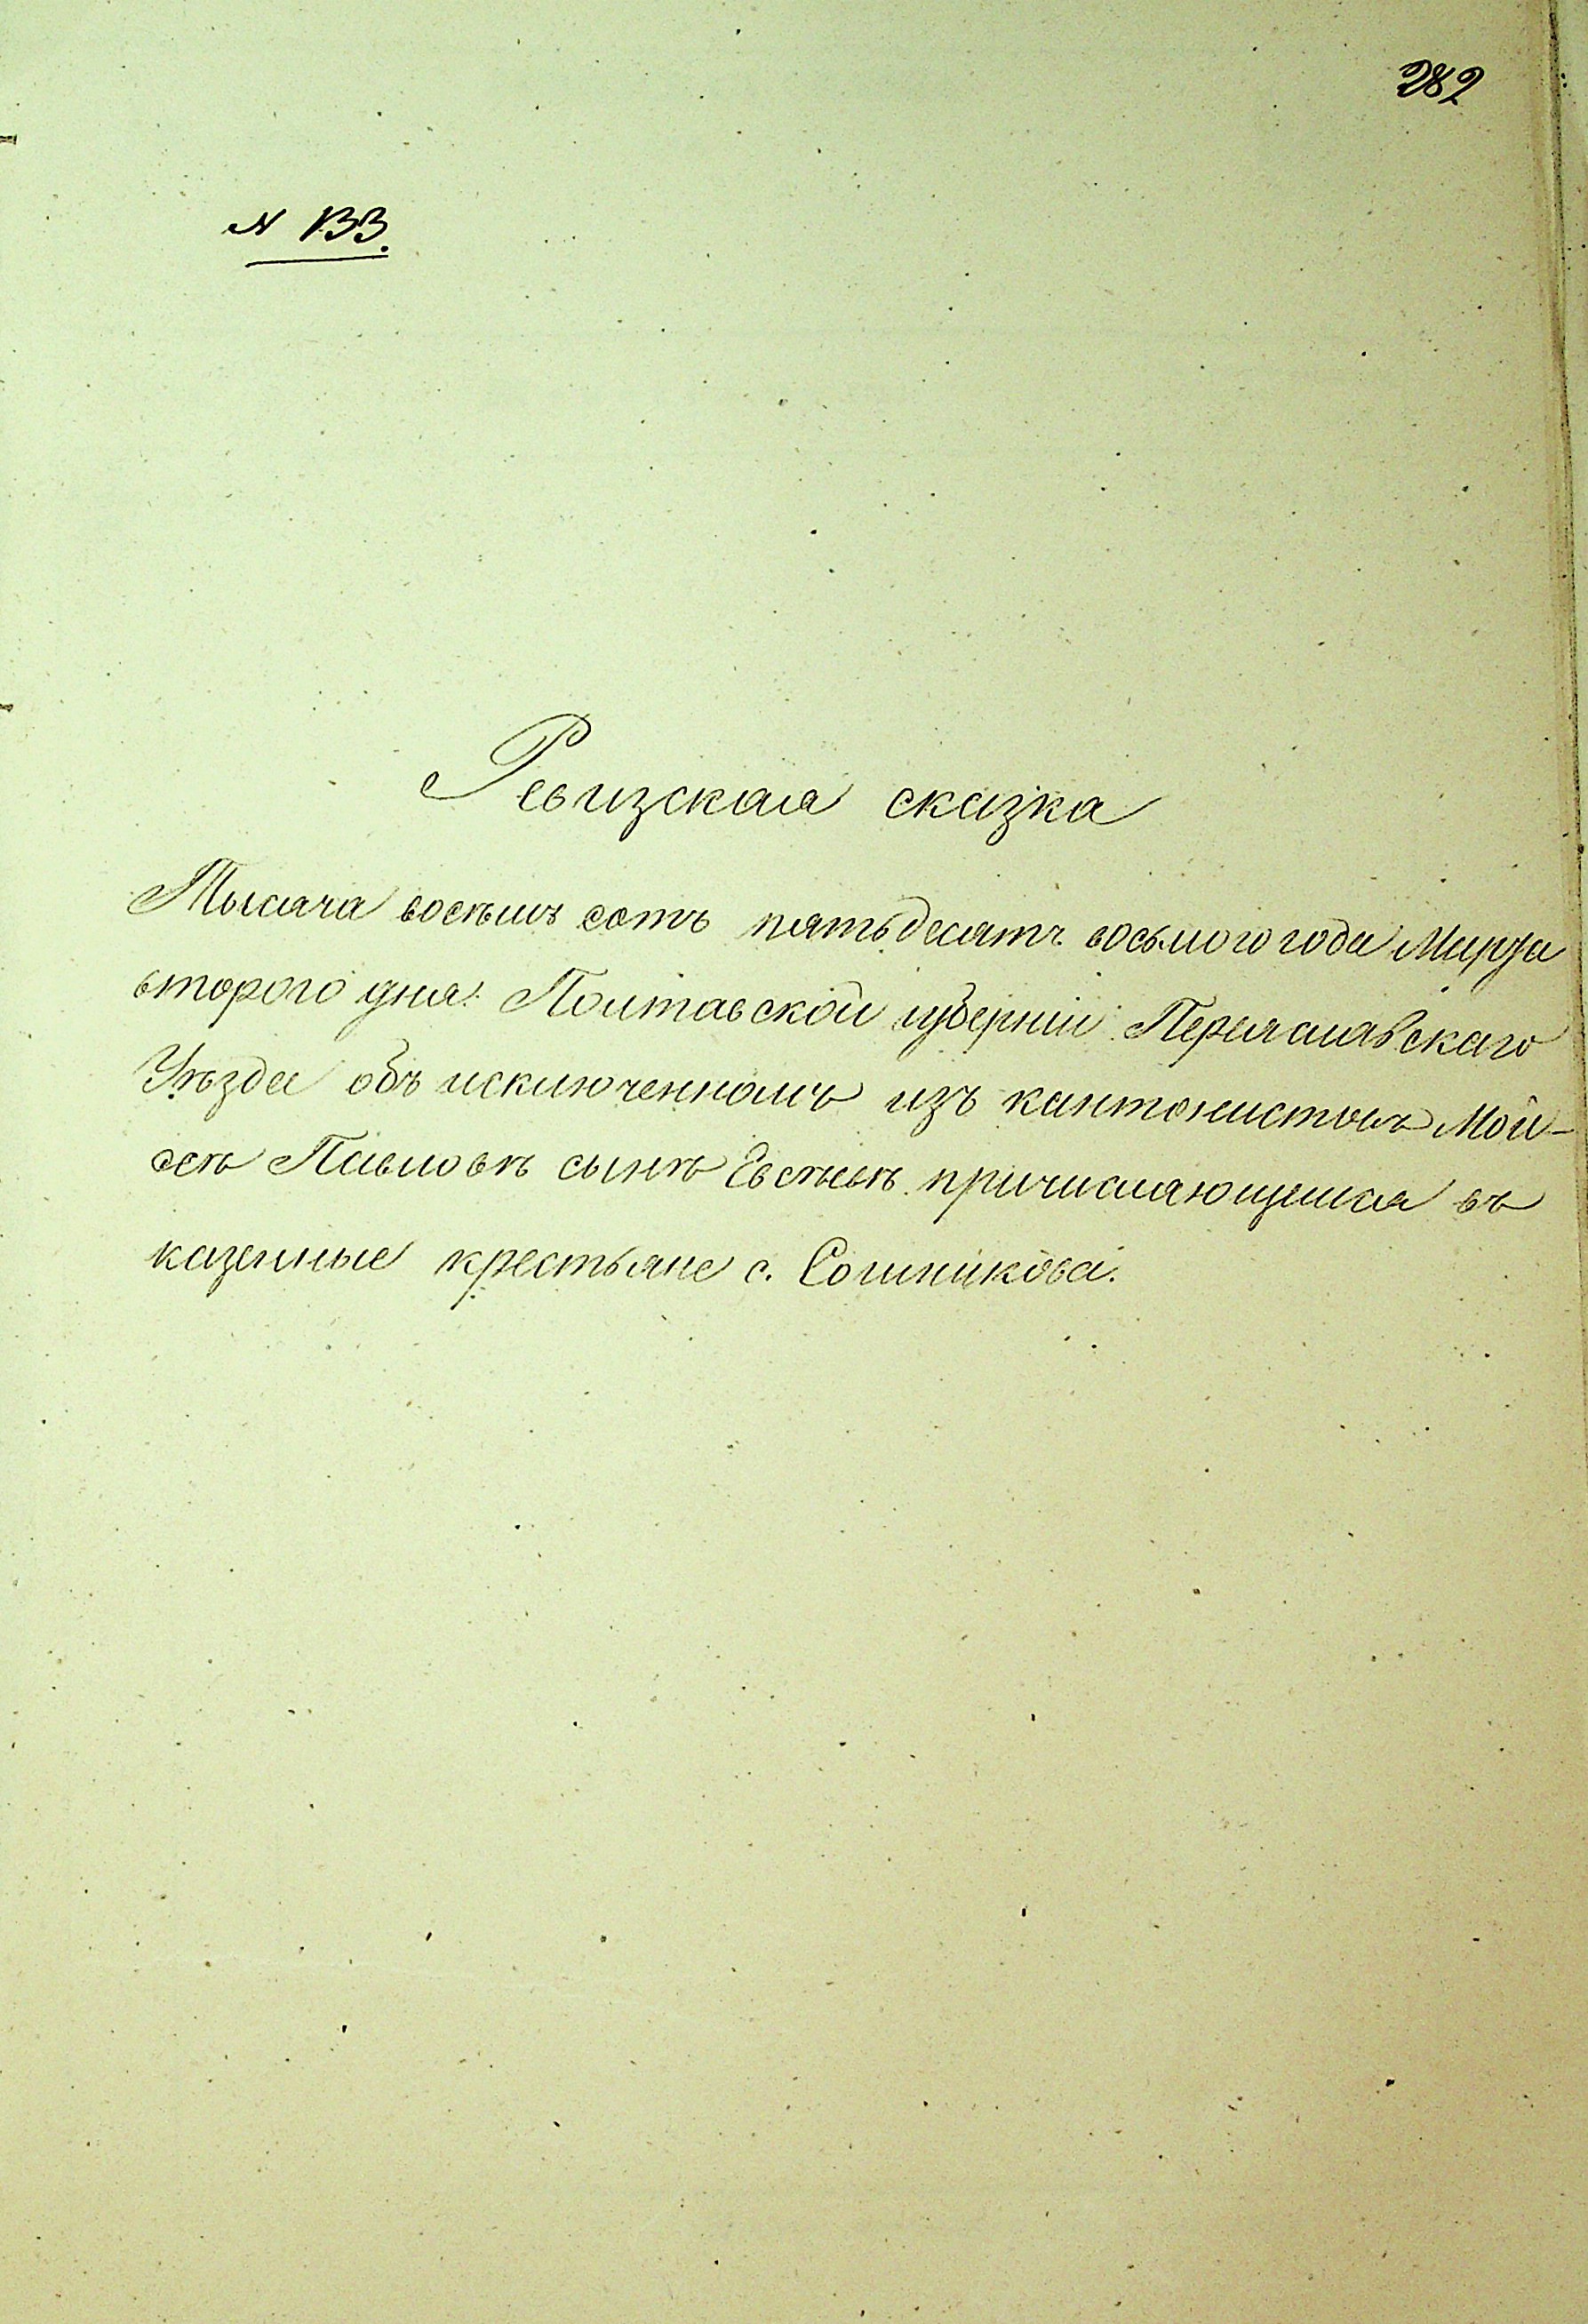 282
№ 133.
Ревизская сказка
Тысяча восемъ сотъ пятьдесятъ восьмого года Марта
второго дня. Полтавской губерніи Переяславскаго
Уѣзда объ исключенномъ изъ кантонистовъ Мой-
сеѣ Павловѣ сынѣ Евсѣевѣ причисляющемся въ
казенные крестьяне с. Сошникова.